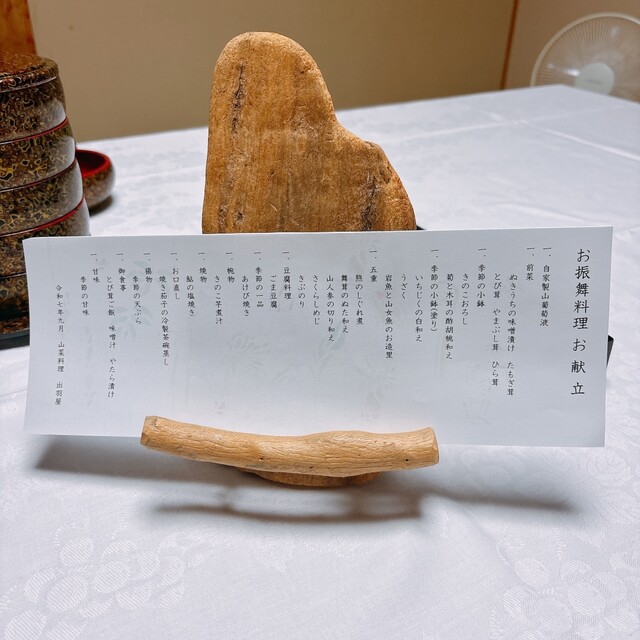 お振舞料理お献立
一、自家製山葡萄液
一、前菜
ぬきうちの味噌漬け　たもぎ茸
とび茸　やまぶし茸　ひら茸
一、季節の小鉢
きのこおろし
筍と木耳の粉胡桃和え
一、季節の小鉢(塗り)
いちじくの白和え
うざく
岩魚と山女魚のお造里
一、五重
熊のしぐれ煮
舞茸のぬた和え
山人参の切り和え
さくらしめじ
きぶのり
一、豆腐料理
ごま豆腐
一、季節の一品
あけび焼き
一、椀物
きのこ芋煮汁
一、焼物
鮎の塩焼き
一、お口直し
焼き茄子の冷製茶碗蒸し
一、揚物
季節の天ぷら
一、御食事
とび茸ご飯　味噌汁　やたら漬け
一、甘味
季節の甘味
令和七年九月　山菜料理　出羽屋